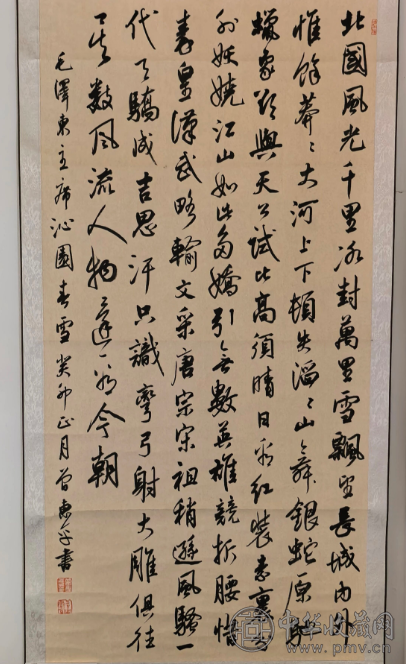 北國風光千里冰封萬里雪飄望長城内外
惟餘莽〻大河上下頓失滔〻山舞銀蛇原馳
蠟象欲與天公試比高須晴日看紅裝素裹分
外妖嬈江山如此多嬌引無數英雄競折腰惜
秦皇漢武略輸文采唐宗宋祖稍遜風騷一
代天驕成吉思汗只識彎弓射大雕俱往
矣數風流人物還看今朝
毛澤東主席沁園春雪癸卯正月曾書
中华收藏网
www.pmv.cn